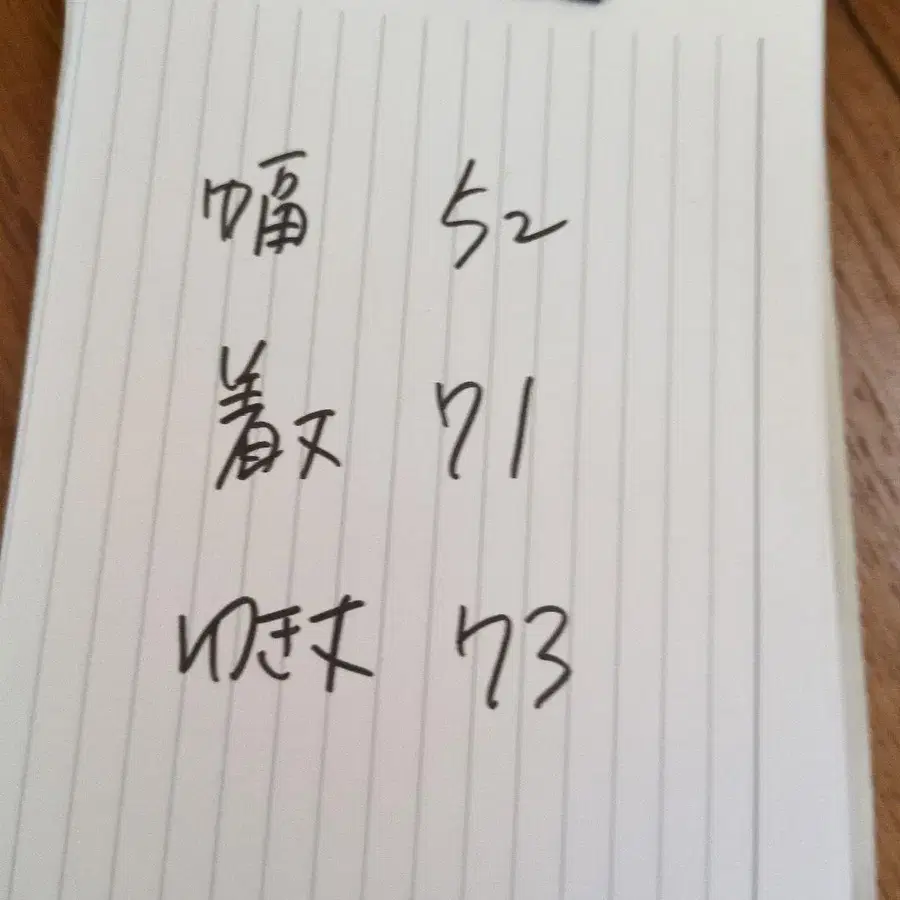 幅 52
着丈 71
ゆき丈 73